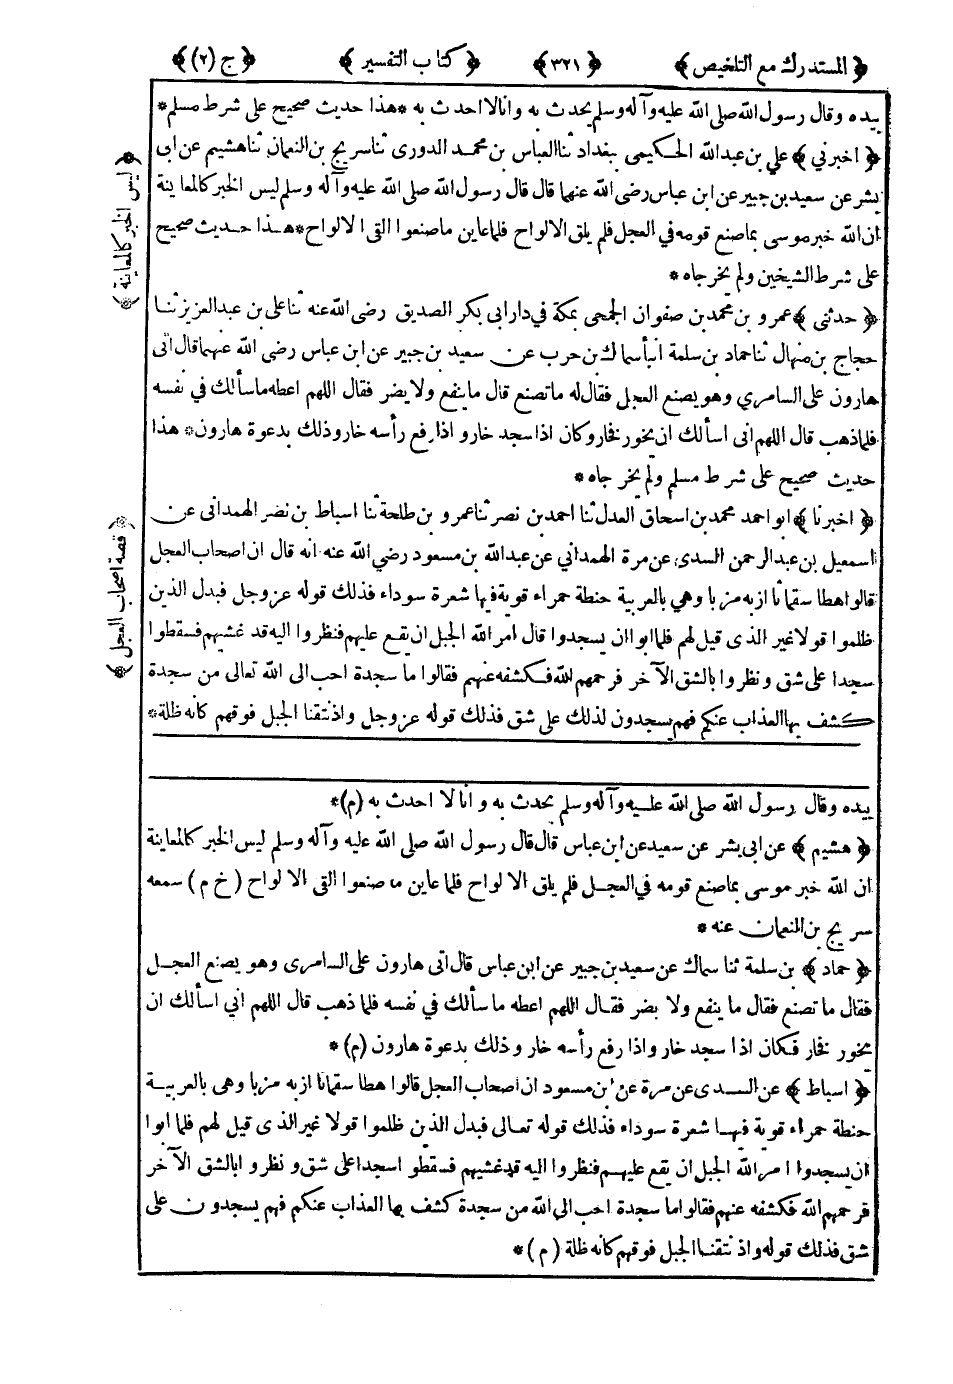 ﴿ المستدرك مع التلخيص ﴾ ﴿ ٣٢١ ﴾ ﴿ كتاب التفسير ﴾ ﴿ ج (٢) ﴾
بيده وقال رسول الله صلى الله عليه وآله وسلم يحدث به وانا لا احدث به * هذا حديث صحيح على شرط مسلم *
﴿ اخبرني ﴾ علي بن عبد الله الحكيمى ببغداد ثنا العباس بن محمد الدورى ثنا سريج بن النعمان ثنا هشيم عن ابى
بشر عن سعيد بن جبير عن ابن عباس رضى الله عنهما قال قال رسول الله صلى الله عليه وآله وسلم ليس الخبر كالمعاينة
ان الله خبر موسى بما صنع قومه في العجل فلم يلق الالواح فلما عاين ما صنعوا القى الالواح * هذا حديث صحيح
على شرط الشيخين ولم يخرجاه *
﴿ حدثنى ﴾ عمرو بن محمد بن صفوان الجمحى بمكة في دار ابى بكر الصديق رضى الله عنه ثنا على بن عبد العزيز ثنا
حجاج بن منهال ثنا حماد بن سلمة انبأ سماك بن حرب عن سعيد بن جبير عن ابن عباس رضى الله عنهما قال اتى
هارون على السامري وهو يصنع العجل فقال له ما تصنع قال ما ينفع ولا يضر فقال اللهم اعطه ما سألك في نفسه
فلما ذهب قال اللهم انى اسألك ان يخور فخار وكان اذا سجد خار و اذا رفع رأسه خار وذلك بدعوة هارون * هذا
حديث صحيح على شرط مسلم ولم يخرجاه *
﴿ اخبرنا ﴾ ابو احمد محمد بن اسحاق العدل ثنا احمد بن نصر ثنا عمرو بن طلحة ثنا اسباط بن نضر الهمدانى عن
اسمعيل بن عبد الرحمن السدى عن مرة الهمداني عن عبد الله بن مسعود رضي الله عنه انه قال ان اصحاب العجل
قالوا هطا سقماثا ازبه مزبا وهي بالعربية حنطة حمراء قوية فيها شعرة سوداء فذلك قوله عز وجل فبدل الذين
ظلموا قولا غير الذى قيل لهم فلما ابوا ان يسجدوا قال امر الله الجبل ان يقع عليهم فنظروا اليه قد غشيهم فسقطوا
سجدا على شق و نظروا بالشق الآخر فرحمهم الله فكشفه عنهم فقالوا ما سجدة احب الى الله تعالى من سجدة
كشف بها العذاب عنكم فهم يسجدون لذلك على شق فذلك قوله عز وجل واذ نتقنا الجبل فوقهم كانه ظلة *
﴿ ليس الخبر كالمعاينة ﴾
﴿ قصة اصحاب العجل ﴾
بيده وقال رسول الله صلى الله عليه وآله وسلم يحدث به و انا لا احدث به (م) *
﴿ هشيم ﴾ عن ابى بشر عن سعيد عن ابن عباس قال قال رسول الله صلى الله عليه وآله وسلم ليس الخبر كالمعاينة
ان الله خبر موسى بما صنع قومه في العجل فلم يلق الالواح فلما عاين ما صنعوا القى الالواح (خ م) سمعه
سريج بن النعمان عنه *
﴿ حماد ﴾ بن سلمة ثنا سماك عن سعيد بن جبير عن ابن عباس قال اتى هارون على السامرى وهو يصنع العجل
فقال ما تصنع فقال ما ينفع ولا يضر فقال اللهم اعطه ما سألك في نفسه فلما ذهب قال اللهم اني اسألك ان
يخور فخار فكان اذا سجد خار واذا رفع رأسه خار وذلك بدعوة هارون (م) *
﴿ اسباط ﴾ عن السدى عن مرة عن ابن مسعود ان اصحاب العجل قالوا هطا سقماثا ازبه مزبا وهى بالعربية
حنطة حمراء قوية فيها شعرة سوداء فذلك قوله تعالى فبدل الذين ظلموا قولا غير الذى قيل لهم فلما ابوا
ان يسجدوا امر الله الجبل ان يقع عليهم فنظروا اليه قد غشيهم فسقطوا سجدا على شق و نظروا بالشق الآخر
فرحمهم الله فكشفه عنهم فقالوا ما سجدة احب الى الله من سجدة كشف بها العذاب عنكم فهم يسجدون على
شق فذلك قوله واذ نتقنا الجبل فوقهم كانه ظلة (م) *